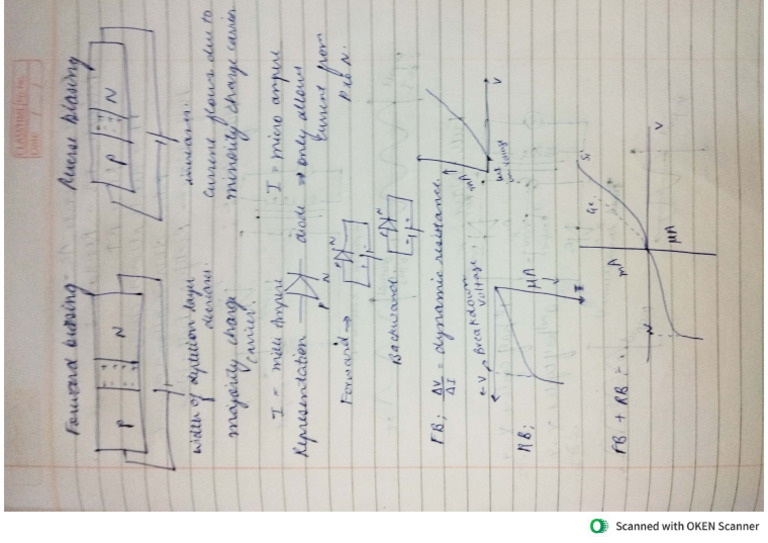 Forward biasing
Reverse Biasing
P N
P N
width of depletion layer decreases.
increases.
majority charge carrier.
current flows due to minority charge carrier
I = milli Ampere
I = micro ampere
Representation
P N
diode → only allows current from P to N.
Forward →
P N
Backward
P N
FB; ΔV/ΔI = dynamic resistance.
mA
V
RB;
← V
Breakdown voltage
μA
FB + RB :-
mA
Ge
Si
V
μA
Scanned with OKEN Scanner